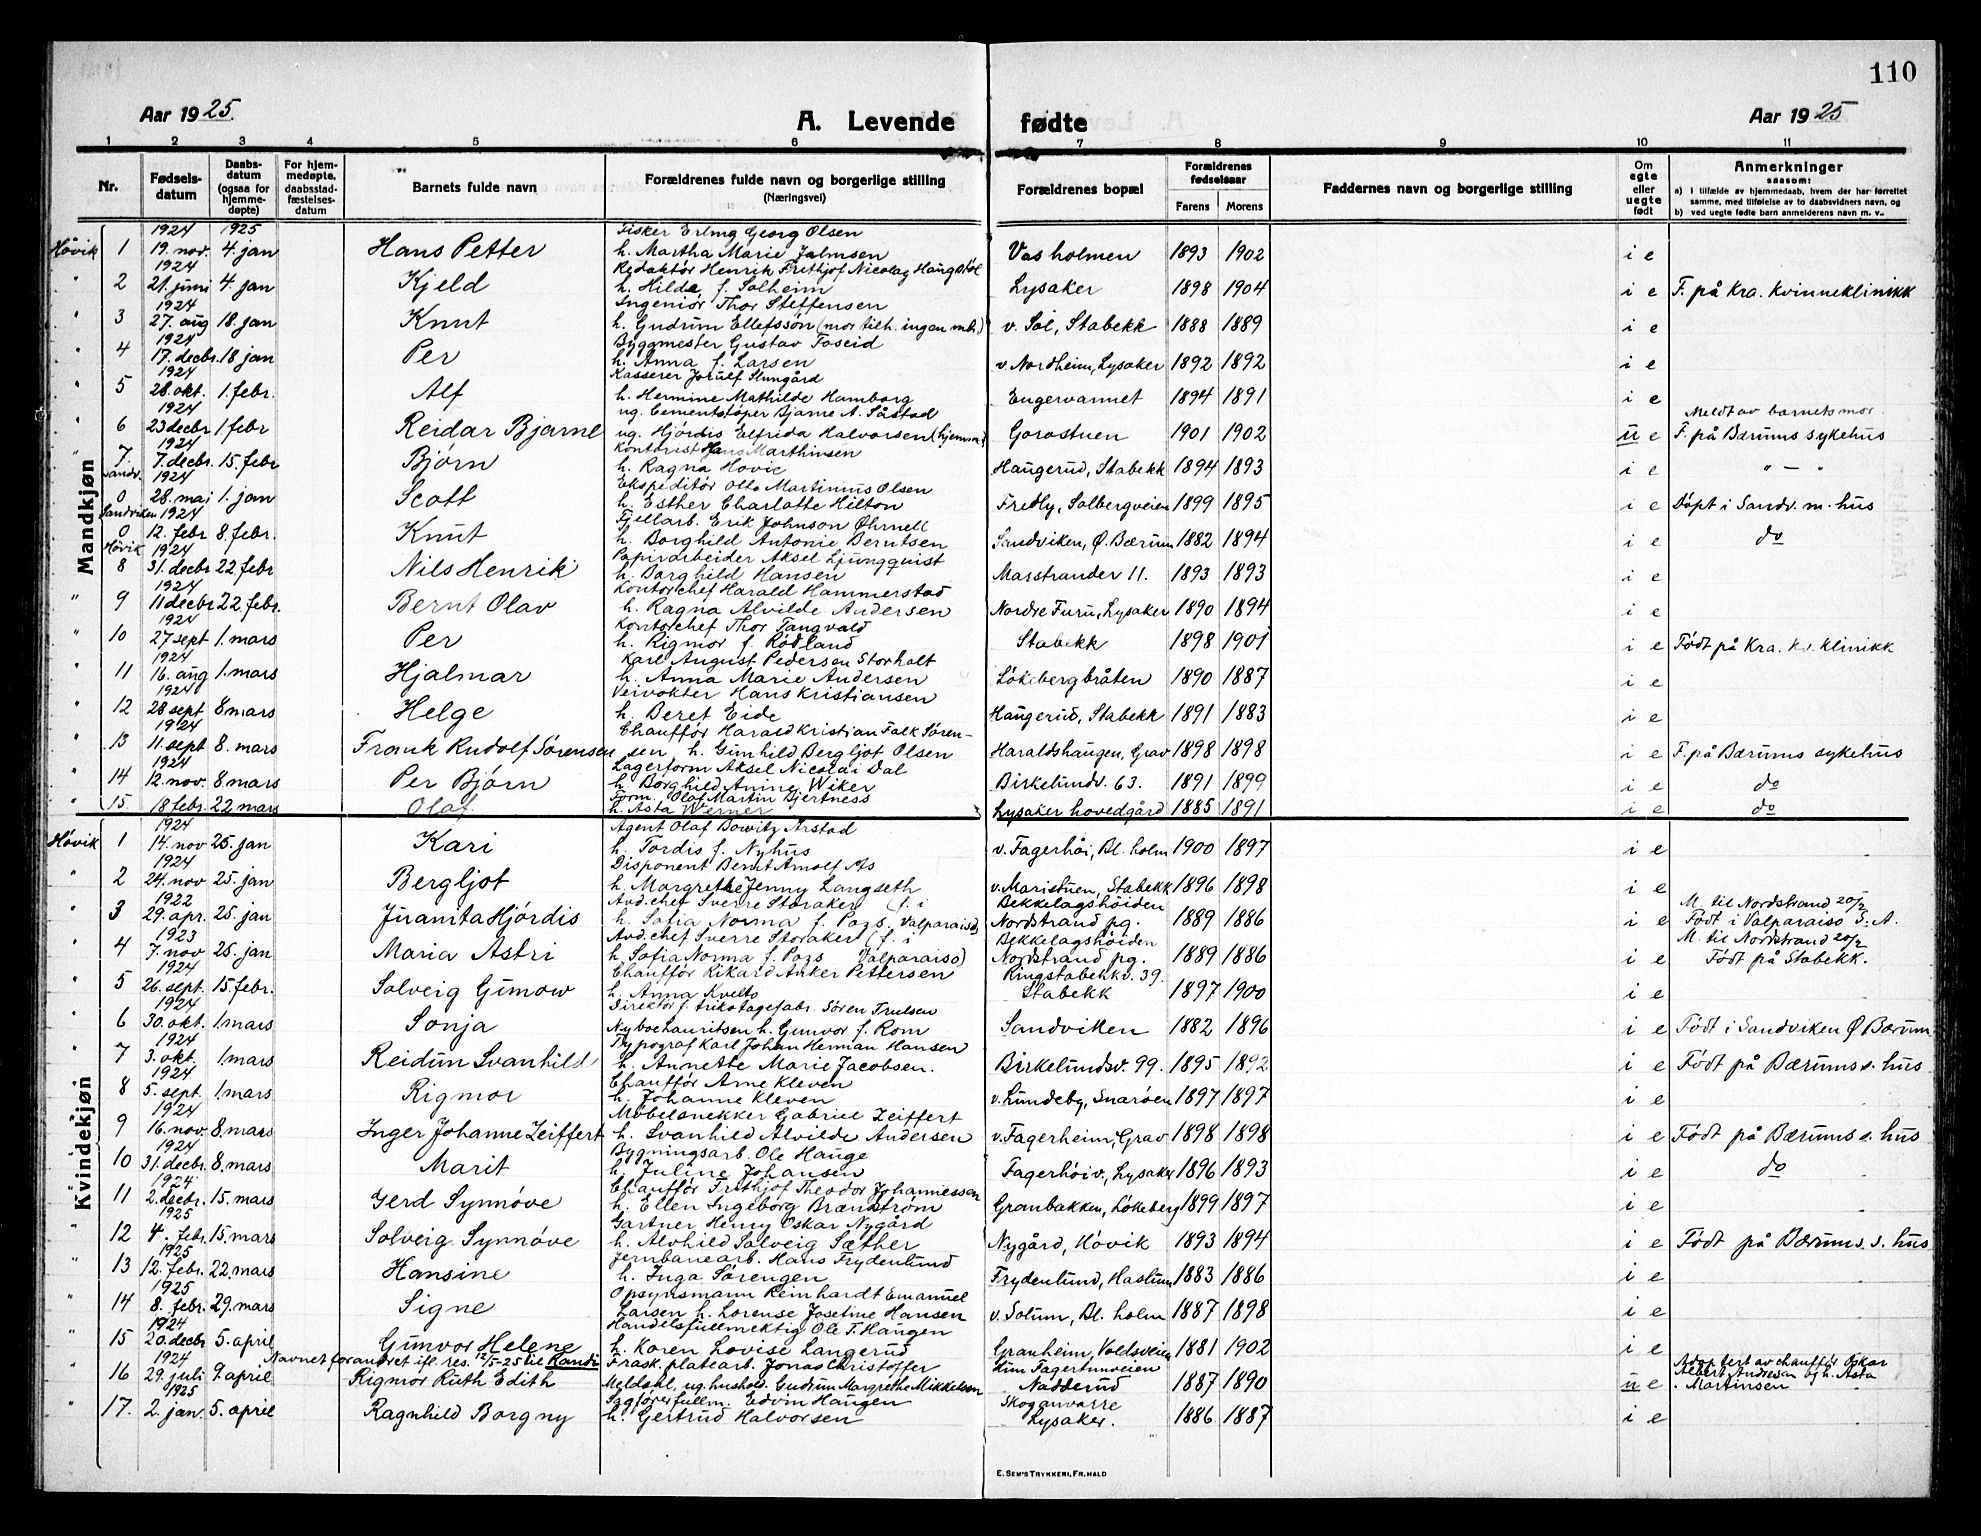 110
Aar 1925.
A. Levende fødte
Aar 1925
1 2 3 4 5 6 7 8 9 10 11
Nr.
Fødsels-datum
Daabs-datum (ogsaa for hjemme-døpte)
For hjem-medøpte, daabsstad-fæstelses-datum
Barnets fulde navn
Forældrenes fulde navn og borgerlige stilling (Næringsvei)
Forældrenes bopæl
Forældrenes fødselsaar
Farens Morens
Faddernes navn og borgerlige stilling
Om egte eller uegte født
Anmerkninger saasom:
a) I tilfælde av hjemmedaab, hvem der har forrettet samme, med tilføielse av to daabsvidners navn, og
b) ved uegte fødte barn anmelderens navn m. v..
Mandkjøn
1924 1925 Fisker Erling Georg Olsen
Høvik 1 19. nov. 4. jan Hans Petter h. Martha Marie Jalmsen Vas holmen 1893 1902 i e
1924 Redaktør Henrik Frithjof Nicolay Haugstøl
" 2 21. juni 4. jan Kjeld h. Hilda f. Solheim Lysaker 1898 1904 i e F. på Kra. Kvinneklinikk
1924 Ingeniør Thor Steffensen
" 3 27. aug 18. jan Knut h. Gudrun Ellefssøn (mor tilh. ingen mh.) v. Sol, Stabekk 1888 1889 i e
1924 Byggmester Gustav
" 4 17. decbr. 18 jan Per h. Anna f. Larsen v. Nordheim, Lysaker 1892 1892 i e
1924 Kasserer
" 5 28. okt. 1. febr. Alf h. Hermine Mathilde Hamborg Engervannet 1894 1891 i e
1924 ug. Cementstøper Bjarne A. Såstad Meldt av barnets mor.
" 6 23 decbr 1 febr Reidar Bjarne ug. Hjördis Elfrida Halvorsen (hjemme) 1901 1902 u e F. på Bærums sykehus
1924 Kontorist Hans Marthinsen
" 7. 7. decbr. 15. febr Bjørn h. Ragna Hovie Haugerud, Stabekk 1894 1893 i e " — "
Sandv. 1924 Ekspeditør Otto Martinius Olsen
0 28. mai 1. jan Scott h. Esther Charlotte Hilton Fredly, Solbergveien 1899 1895 i e Döpt i Sandv. m. hus
Sandviken 1924 Fjellarb. Erik Johnson Øhrnell
0 12. febr 8. febr. Knut h. Borghild Antonie Berntsen Sandviken, Ø. Bærum 1882 1894 i e do
Høvik 1924 Papirarbeider Aksel Ljungquist
8 31. decbr 22. febr Nils Henrik h. Borghild Hansen Marstrander 11. 1893 1893 i e
1924 Kontorchef Harald Hammerstad
" 9 11 decbr 22 febr. Bernt Olav h. Ragna Alvilde Andersen Nordre Furu, Lysaker 1890 1894 i e
1924 Kontorchef Thor Tangvald
" 10 27 sept 1. mars Per h. Rigmor f. Rødland Stabekk 1898 1901 i e Født på Kra. kv. klinikk
1924 Karl August Pedersen Storholt
" 11 16. aug 1. mars Hjalmar h. Anna Marie Andersen Lökebergbråten 1890 1887 i e
1924 Veivokter Hans Kristiansen
" 12 28 sept 8 mars Helge h. Beret Eide Haugerud, Stabekk 1891 1883 i e
1924 Chauffør Harald Kristian Falk Sören-
" 13 11. sept 8. mars Frank Rudolf Sörensen sen, h. Gunhild Bergljot Olsen Haraldshaugen, Grav 1898 1898 i e F. på Bærums sykehus
1924 Lagerform Aksel Nicolai Dal
" 14 12. nov. 8 mars Per Björn h. Borghild Anine Wiker Birkelundv. 63. 1891 1899 i e do
Form. Olaf Martin Bjertness
" 15. 18 febr. 22 mars Olaf h. Asta Werner Lysaker hovedgård 1885 1891 i e do
Kvindekjøn
1924 Agent Olaf Bowitz Arstad
Høvik 1 14. nov 25. jan Kari h. Tordis f. Nyhus v. Fagerhöi, Bl. holm 1900 1897 i e
1924 Disponent Bernt Arnolf As
" 2 24. nov 25. jan Bergljot h. Margrethe Jenny Langseth v. Maristuen, Stabekk 1896 1898 i e
1922 Avd. chef Sverre Storaker (f. i Bekkelagshöiden M. til Nordstrand 20/2
" 3 29. apr. 25. jan Juanita Hjördis h. Sofia Norma f. Pozs, Valparaiso) Nordstrand pg. 1889 1886 i e Født i Valparaiso S. A.
1923 Avd. chef Sverre Storaker (f. i Bekkelagshöiden M. til Nordstrand 20/2
" 4 7. nov 25. jan Maria Astri h. Sofia Norma f. Pozs Valparaiso) Nordstrand pg. 1889 1886 i e Født på Stabekk.
1924 Chauffør Rikard Anker Pettersen Ringstabekkv. 39.
" 5 26. sept. 15. febr. Solveig Gunow h. Anna Kvelto Stabekk 1897 1900 i e
1924 Direktør f. trikotagefabr. Sören Trulsen
" 6 30. okt. 1. mars Sonja Nyboe Lauritsen h. Gunvor f. Rom Sandviken 1882 1896 i e Født i Sandviken Ø. Bærum
1924 Typograf Karl Johan Herman Hansen
" 7 3. okt. 1. mars Reidun Svanhild h. Annette Marie Jacobsen. Birkelundsv. 99. 1895 1892 i e Født på Bærums s. hus
1924 Chauffør Arne Kleven
" 8 5. sept. 1. mars Rigmor h. Johanne Kleven v. Lundeby, Snaröen 1897 1897 i e
1924 Møbelsnekker Gabriel Zeiffert
" 9 16. nov. 8. mars Inger Johanne Zeiffert h. Svanhild Alvilde Andersen v. Fagerheim, Grav 1898 1898 i e Født på Bærums s. hus
1924 Bygningsarb. Ole Hauge
" 10 31. decbr. 8. mars Marit h. Juline Johansen Fagerhöiv., Lysaker 1896 1893 i e do
1924 Chauffør Frithjof Theodor Johannesson
" 11 2. decbr. 15. mars Gerd Synnöve h. Ellen Ingeborg Brændström Granbakken, Lökeberg 1899 1897 i e
1925 Gartner Henry Oskar Nygård
" 12 4. febr. 15. mars Solveig Synnöve h. Alvhild Solveig Sæther Nygård, Hövik 1893 1894 i e Født på Bærums. s. hus
1925 Jernbanearb. Hans Frydenlund
" 13 12. febr. 22. mars Hansine h. Inga Sörengen Frydenlund, Haslum 1883 1886 i e
1925 Opsynsmann Reinhardt Emanuel
" 14 8. febr. 29. mars Signe Larsen h. Lorense Josefine Hansen v. Solum, Bl. holm 1887 1898 i e
1924 Handelsfullmektig Ole T. Haugen
" 15 20. decbr 5. april Gunvor Helene h. Karen Lovise Langerud Granheim, Voldsveien 1881 1902 i e
1924 Navnet forandret ifl. res. 12/5-25 til Randi Frask. platearb. Jonas Christoffer Fagertunveien Adoptert av chauffør Oskar Albert Andresen og h. Asta
" 16 29. juli 9. april Rigmor Ruth Edith Meldahl, ug. hushold. Gudrun Margrethe Mikkelsen Nadderud 1887 1890 u e . Martinsen
1925 Sagførerfullm. Edvin Haugen Skoganvarre
" 17. 2. jan. 5. april Ragnhild Borgny h. Gertrud Halvorsen Lysaker. 1886 1887 i e
E. Sem's Trykkeri, Fr.hald